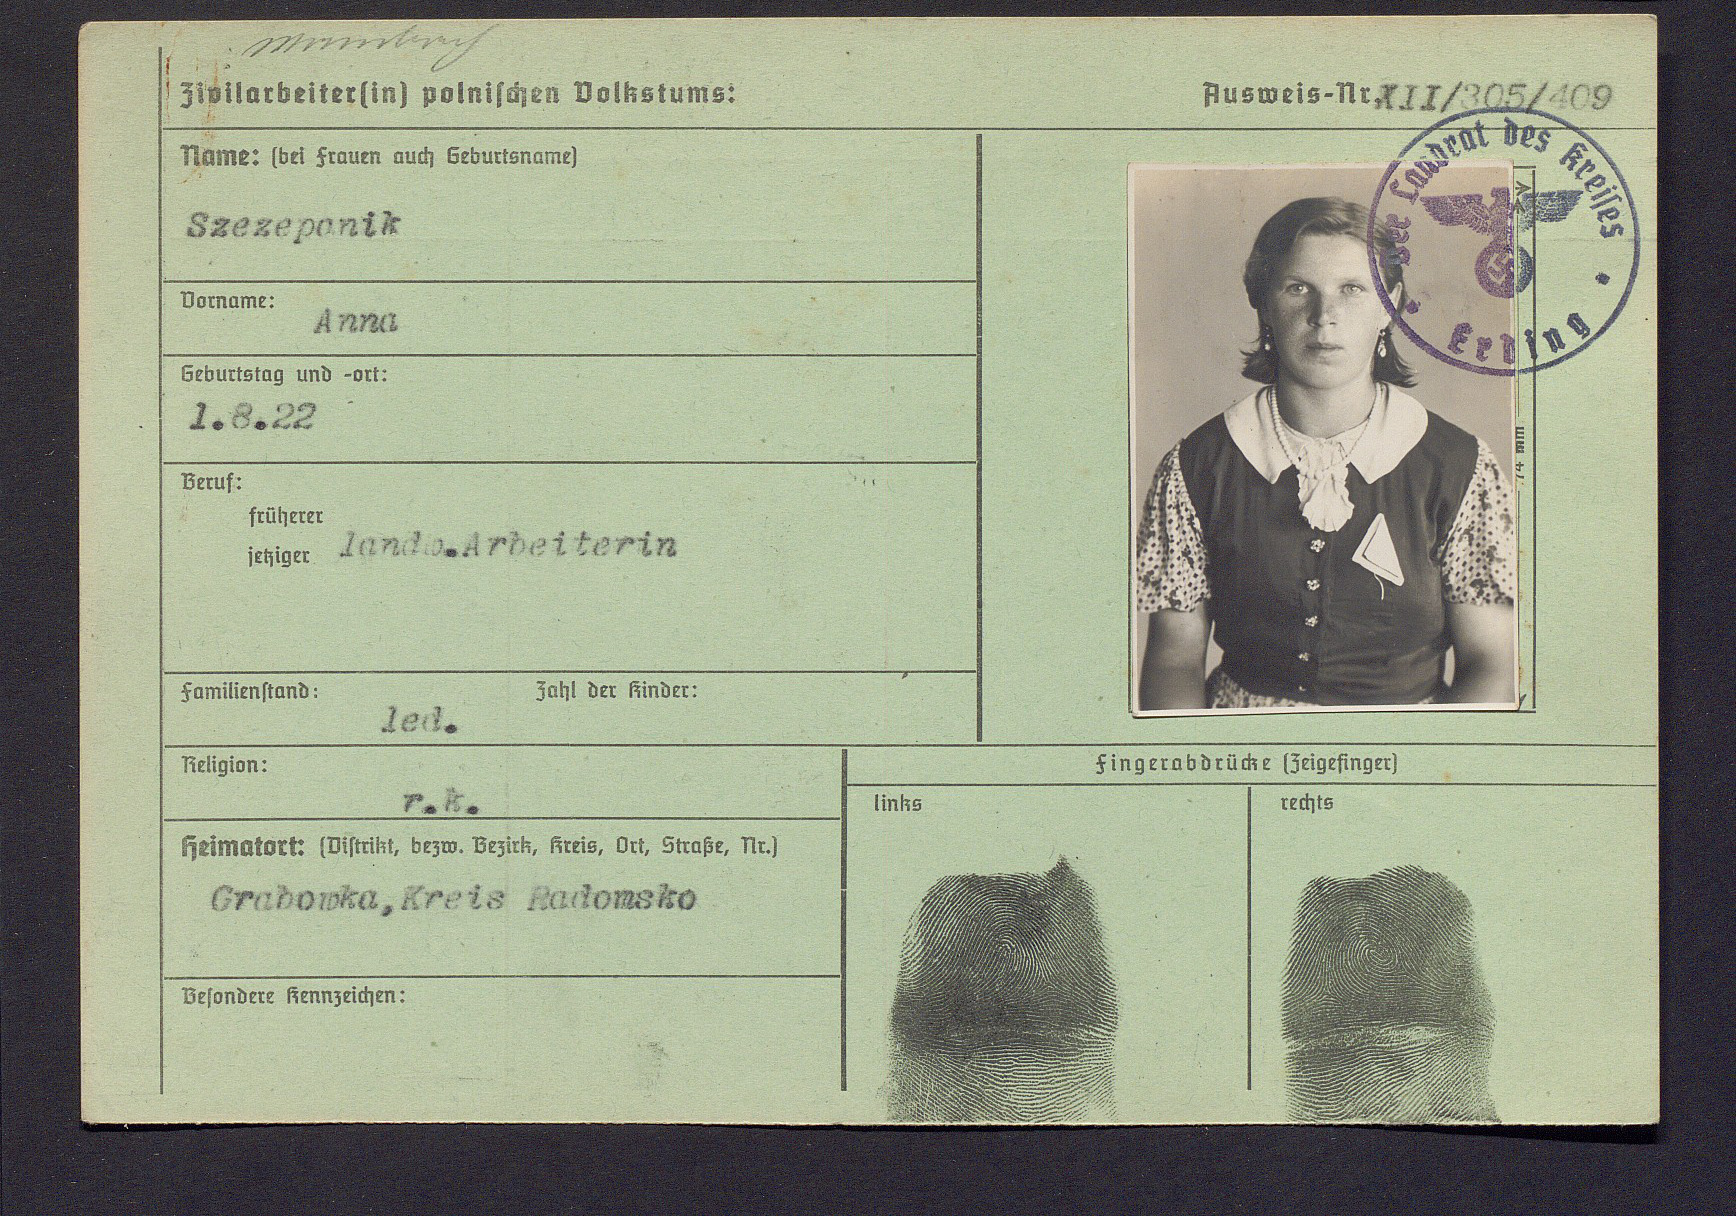 Zivilarbeiter(in) polnischen Volkstums:
Ausweis-Nr. XII/305/409
Name: (bei Frauen auch Geburtsname)
Szezepanik
Vorname:
Anna
Geburtstag und -ort:
1.8.22
Beruf:
früherer
jetziger landw.Arbeiterin
Familienstand: Zahl der Kinder:
led.
Religion:
r.k.
Heimatort: (Distrikt, bezw. Bezirk, Kreis, Ort, Straße, Nr.)
Grabowka,Kreis Radomsko
Besondere Kennzeichen:
Der Landrat des Kreises
Erding
74 mm
Fingerabdrücke (Zeigefinger)
links
rechts